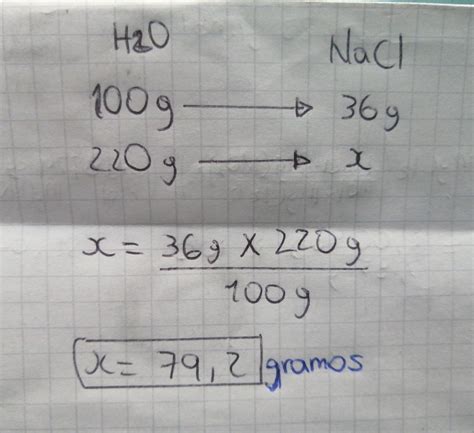 H2O NaCl
100g → 36g
220g → x
x = 36g x 220g
100g
x = 79,2 gramos